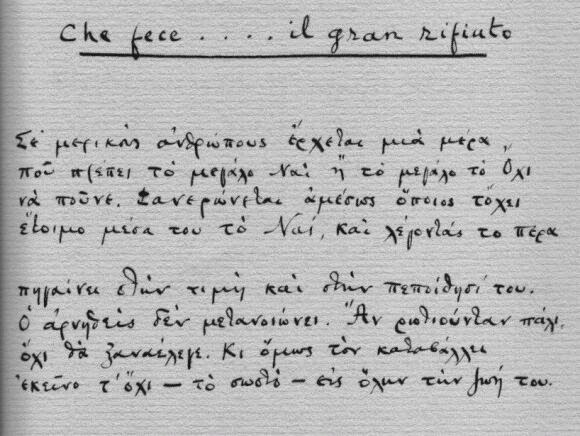 Che fece .... il gran rifiuto
Σὲ μερικοὺς ἀνθρώπους ἔρχεται μιὰ μέρα
ποῦ πρέπει τὸ μεγάλο Ναὶ ἢ τὸ μεγάλο τὸ Ὄχι
νὰ ποῦνε. Φανερώνεται ἀμέσως ὅποιος τὄχει
ἕτοιμο μέσα του τὸ Ναί, καὶ λέγοντάς το πέρα
πηγαίνει στὴν τιμὴ καὶ στὴν πεποίθησί του.
Ὁ ἀρνηθεὶς δὲν μετανοιώνει. Ἂν ρωτιούνταν πάλι,
ὄχι θὰ ξαναέλεγε. Κι ὅμως τὸν καταβάλλει
ἐκεῖνο τ' ὄχι — τὸ σωστὸ — εἰς ὅλην τὴν ζωή του.